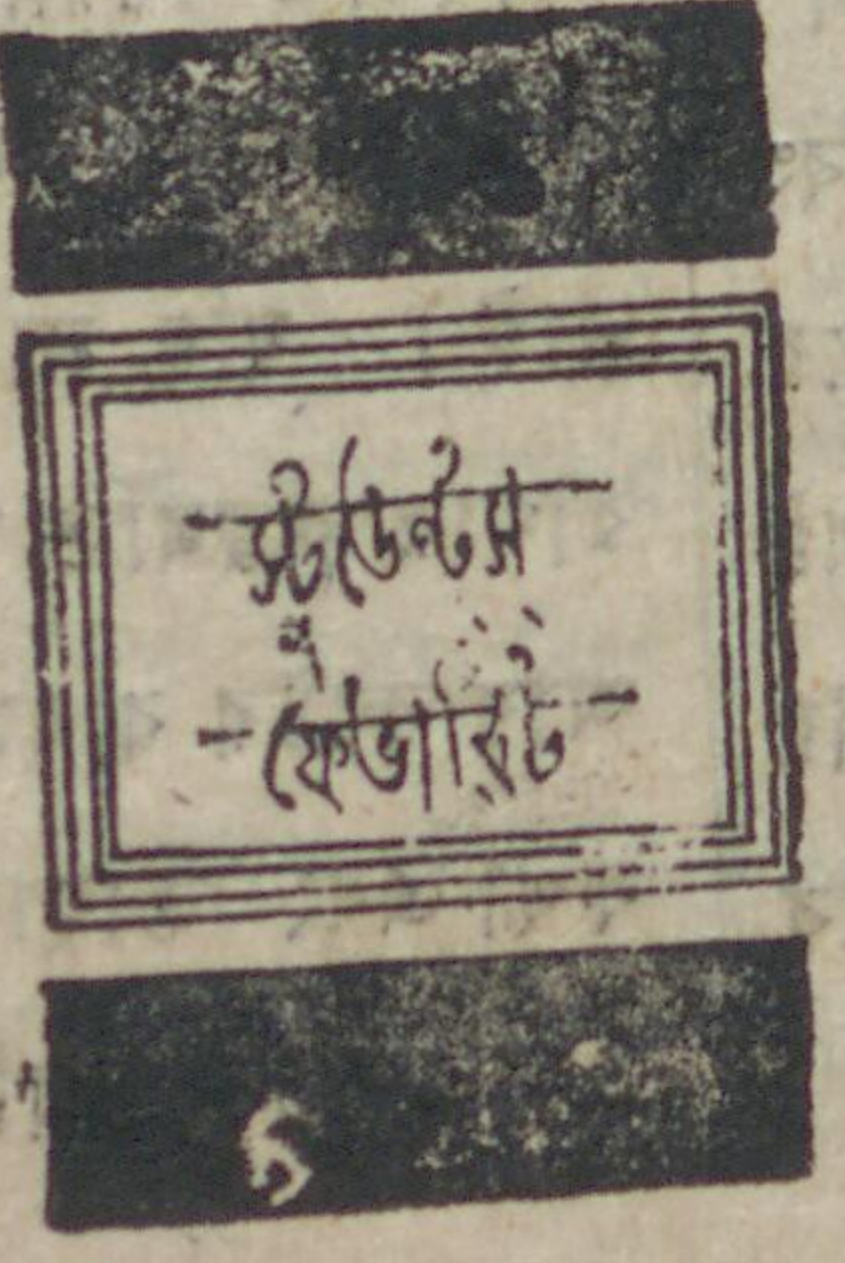 স্টুডেন্টস
ফেভারিট